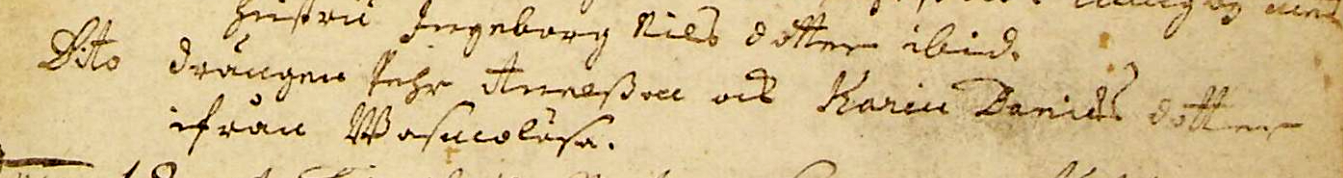 hustru Ingeborg Nils dotter ibid.
Dito drängen Pehr Anersson och Karin Daniels dotter
ifrån Wasmolösa.